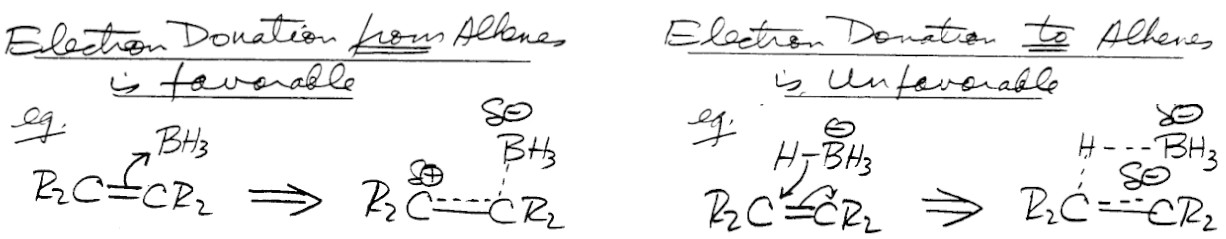 Electron Donation from Alkenes
is favorable
eg.
BH₃
R₂C=CR₂ ⟹ R₂C=CR₂
δ⊕
δ⊖
BH₃
Electron Donation to Alkenes
is Unfavorable
eg.
⊖
H–BH₃
R₂C=CR₂ ⟹ R₂C=CR₂
δ⊖
H---BH₃
δ⊖